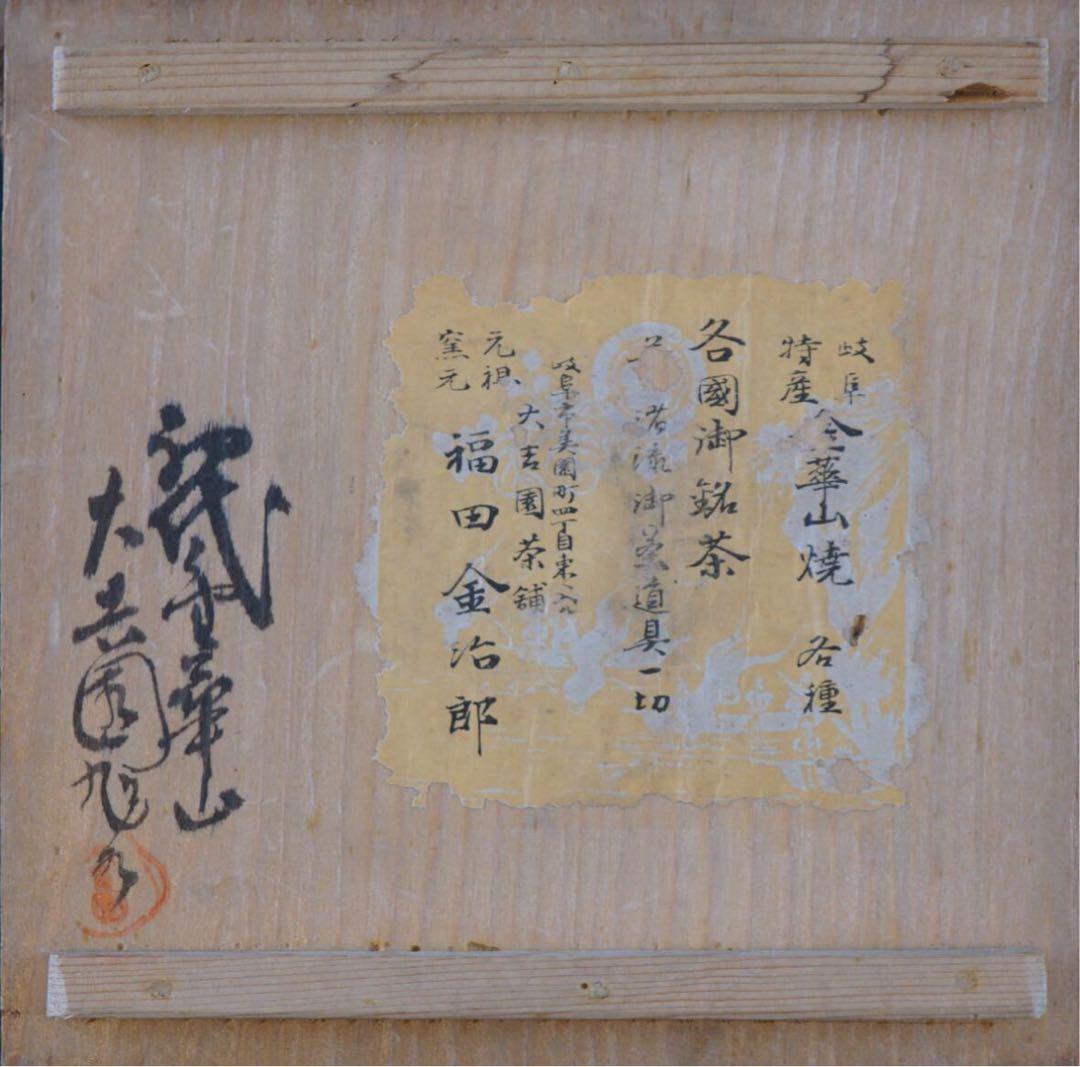 岐阜
特産
金華山焼　各種
各國御銘茶
諸流御茶道具一切
岐阜市美園町四丁目東ヘ入ル
大吉園茶舗
元祖
窯元
福田金治郎
金華山
大吉園